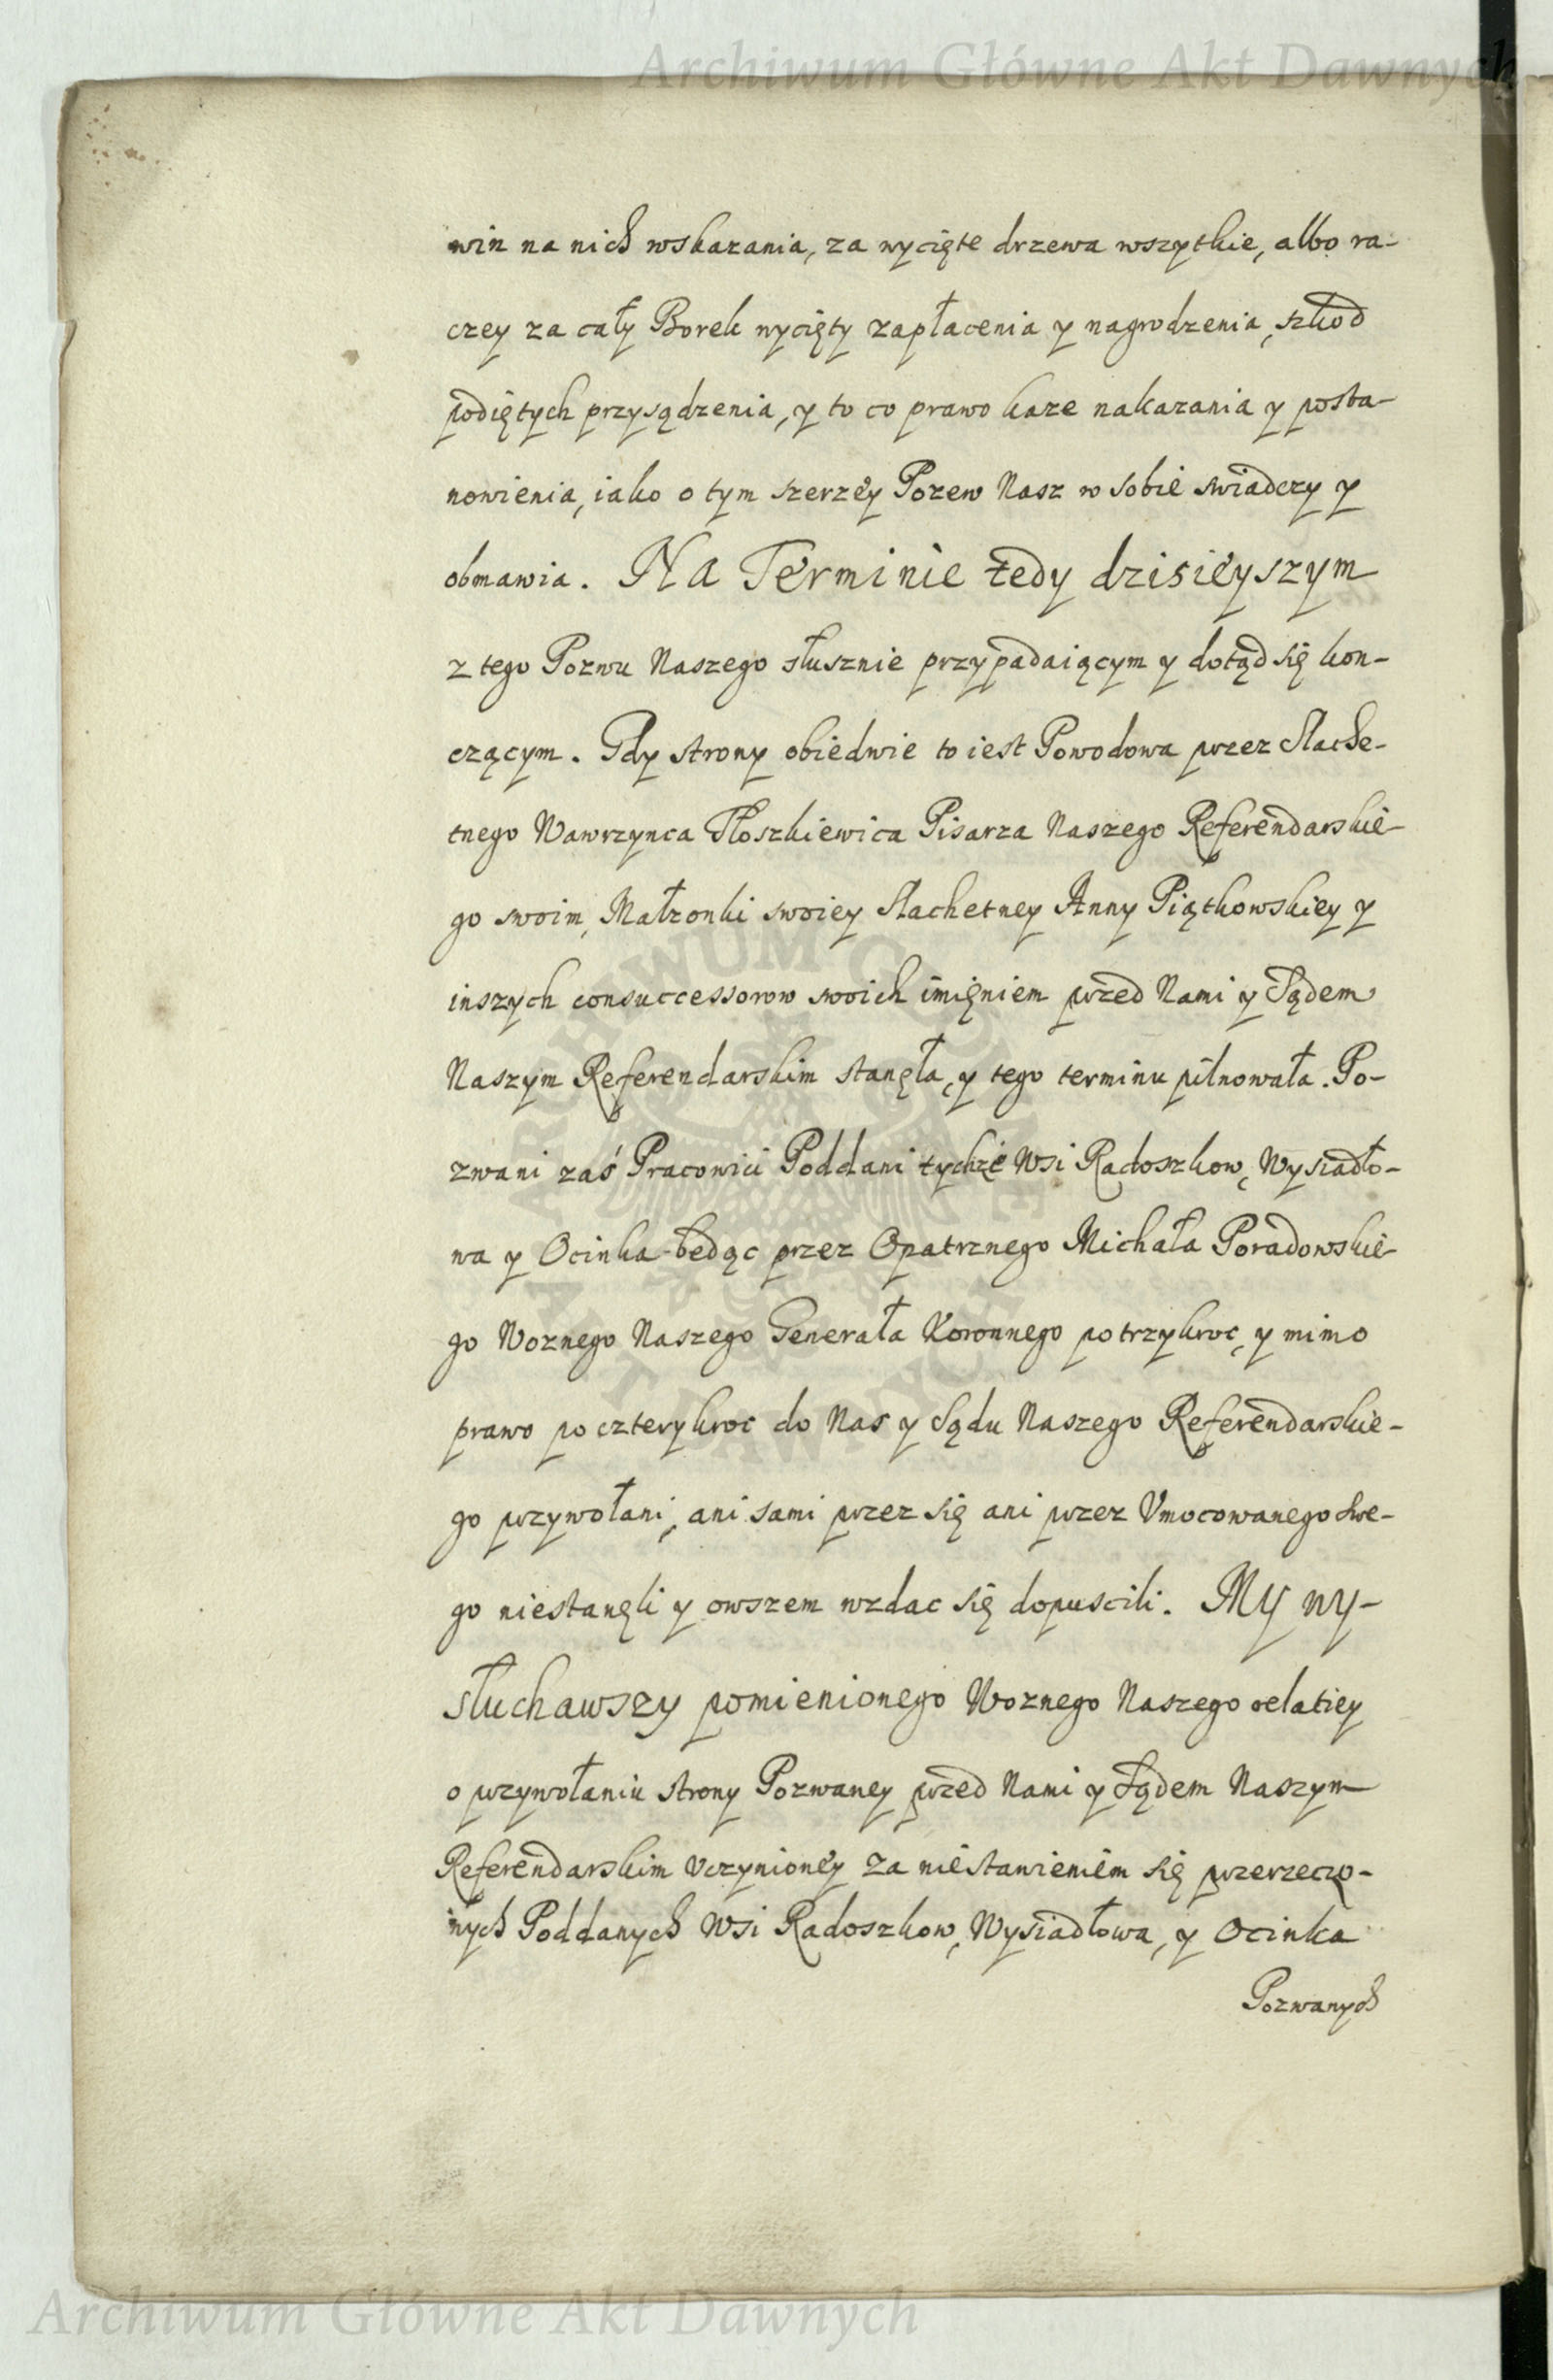 Archiwum Główne Akt Dawnych
win na nich wskazania, za wycięte drzewa wszytkie, albo ra-
czey za cały Borek wycięty zapłacenia y nagrodzenia, szkod
podiętych przysądzenia, y to co prawo każe nakazania y posta-
nowienia, iako o tym szerzey Pozew Nasz w sobie swiadczy y
obmawia. Na Terminie tedy dzisieyszym
z tego Pozwu Naszego słusznie przypadaiącym y dotąd się kon-
czącym. Gdy strony obiedwie to iest Powodowa przez Slache-
tnego Wawrzynca Tłoszkiewica Pisarza Naszego Referendarskie-
go swoim, Małżonki swoiey Slachetney Anny Piątkowskiey y
inszych consuccessorow swoich imięniem przed Nami y Sądem
Naszym Referendarskim stanęła, y tego terminu pilnowała. Po-
zwani zaś Pracowici Poddani tychże Wsi Radoszkow, Wysiadło-
wa y Ocinka będąc przez Opatrznego Michała Poradowskie-
go Woznego Naszego Generała Koronnego potrzykroc, y mimo
prawo po czterykroc do Nas y Sądu Naszego Referendarskie-
go przywołani, ani sami przez się ani przez Vmocowanego Swe-
go niestanęli y owszem wzdac się dopuscili. My wy-
słuchawszy pomienionego Woznego Naszego relatiey
o przywołaniu strony Pozwaney przed Nami y Sądem Naszym
Referendarskim vczynioney za niestawieniem się przerzeczo-
nych Poddanych Wsi Radoszkow, Wysiadłowa, y Ocinka
Pozwanych
ARCHIWUM GŁÓWNE
AKT DAWNYCH
Archiwum Główne Akt Dawnych